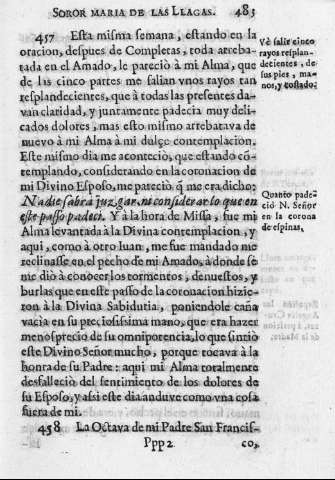 SOROR MARIA DE LAS LLAGAS. 483
457 Esta misma semana, estando en la
oracion, despues de Completas, toda arreba-
tada en el Amado, le pareciò à mi Alma, que
de las cinco partes me salian vnos rayos tan
resplandecientes, que à todas las presentes da-
van claridad, y juntamente padecia muy deli-
cados dolores, mas esto mismo arrebatava de
nuevo à mi Alma à mi dulçe contemplacion.
Este mismo dia me aconteciò, que estando cõ-
templando, considerando en la coronacion de
mi Divino Esposo, me pareciò q̃ me era dicho:
Nadie sabrà juzgar, ni considerar lo que en
este passo padeci. Y à la hora de Missa, fue mi
Alma levantada à la Divina contemplacion, y
aqui, como à otro Iuan, me fue mandado me
reclinasse en el pecho de mi Amado, à donde se
me diò à conocer los tormentos, denuestos, y
burlas que en este passo de la coronacion hizie-
ron à la Divina Sabidutia, poniendole caña
vacia en su preciosissima mano, que era hazer
menosprecio de su omnipotencia, lo que sintiò
este Divino Señor mucho, porque tocava à la
honra de su Padre: aqui mi Alma totalmente
desfalleciò del sentimiento de los dolores de
su Esposo, y assi este dia anduve como vna cosa
fuera de mi.
458 La Octava de mi Padre San Francis-
Ppp 2 co,
Vè salir cinco
rayos resplan-
decientes, de
sus pies, ma-
nos, y costado.
Quanto pade-
ciò N. Señor
en la corona
de espinas,